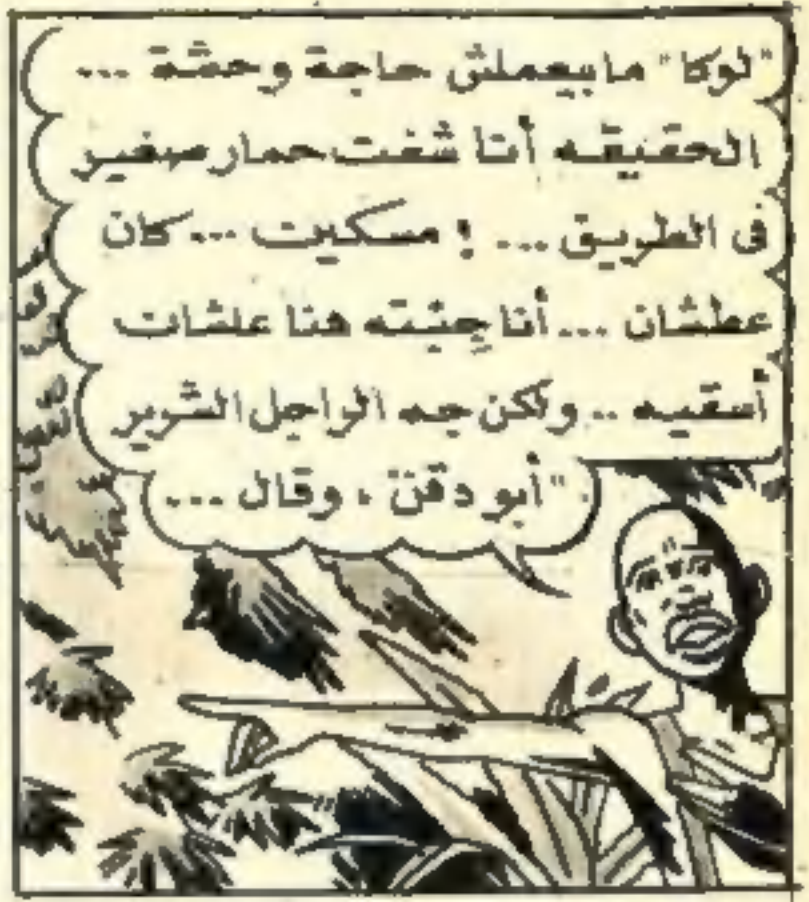 "لوكا" مابيعملش حاجة وحشة ...
الحقيقه أنا شفت حمار صغير
فى الطريق ... ! مسكين ... كان
عطشان ... أنا جِبْته هنا علشان
أسقيه .. ولكن جه الراجل الشرير
"أبو دقن" ، وقال ...